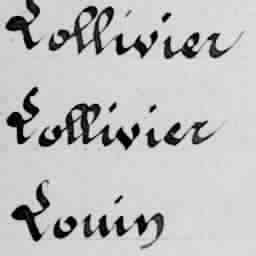 Lollivier
Lollivier
Louin